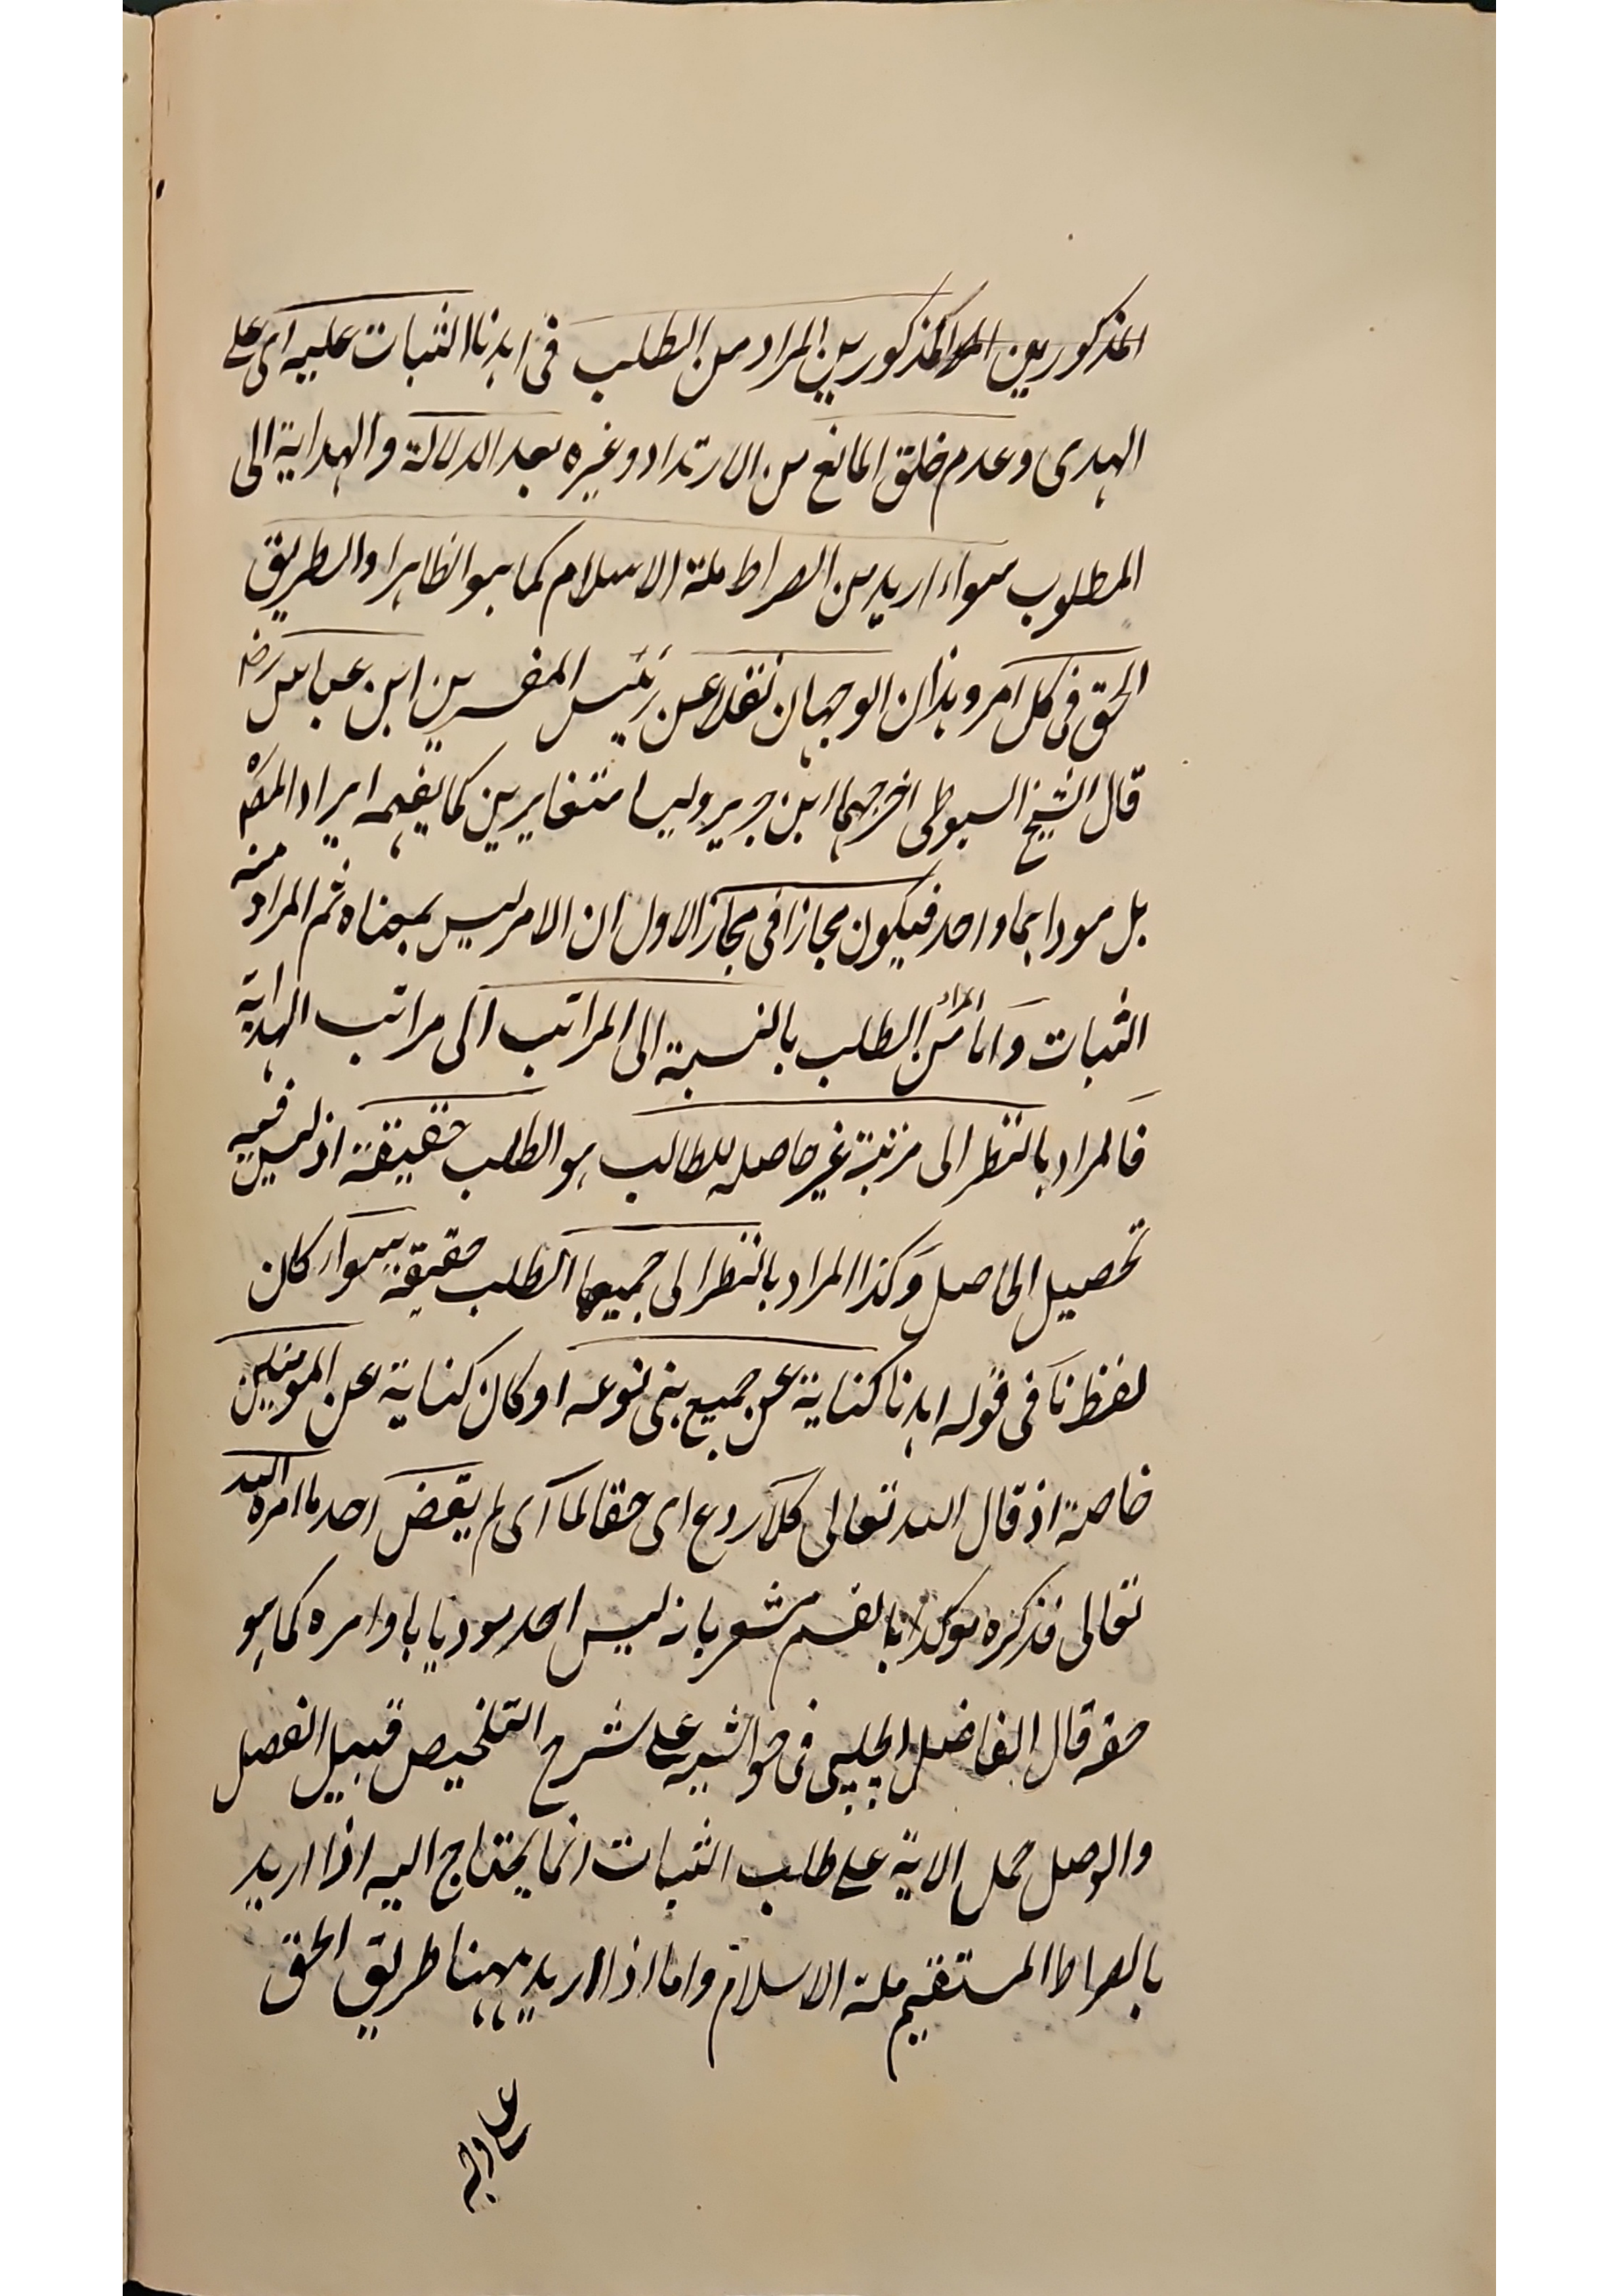 المذكورين المذكورين المراد من الطلب فى اهدنا الثبات عليه اى على
الهدى وعدم خلق المانع من الارتداد وغيره بعد الدلالة والهداية الى
المطلوب سواء اريد من الصراط ملة الاسلام كما هو الظاهر او الطريق
الحق فى كل امر وهذان الوجهان نقلا عن رئيس المفسرين ابن عباس رضہ
قال الشيخ السيوطى اخرجهما ابن جرير وليسا متغايرين كما يفهمه ايراد المصہ
بل موداهما واحد فيكون مجازا فى مجاز الاول ان الامر ليس بمعناه ثم المراد منه
الثبات واما المراد من الطلب بالنسبة الى المراتب اى مراتب الهداية
فالمراد بالنظر الى مرتبة غير حاصله للطالب هو الطلب حقيقة اذ ليس فيه
تحصيل الحاصل وكذا المراد بالنظر الى جميعها الطلب حقيقة سواء كان
لفظ نا فى قوله اهدنا كناية عن جميع بنى نوعه او كان كناية عن المومنين
خاصة اذ قال الله تعالى كلا ردع اى حقا لما اى لم يقض احد ما امره الله
تعالى فذكره موكدا بالقسم مشعر بانه ليس احد موديا باوامره كما هو
حقه قال الفاضل الچلپى فى حواشيه على شرح التلخيص قبيل الفصل
والوصل حمل الاية على طلب الثبات انما يحتاج اليه اذا اريد
بالصراط المستقيم ملة الاسلام واما اذا اريد ههنا طريق الحق
على وجه